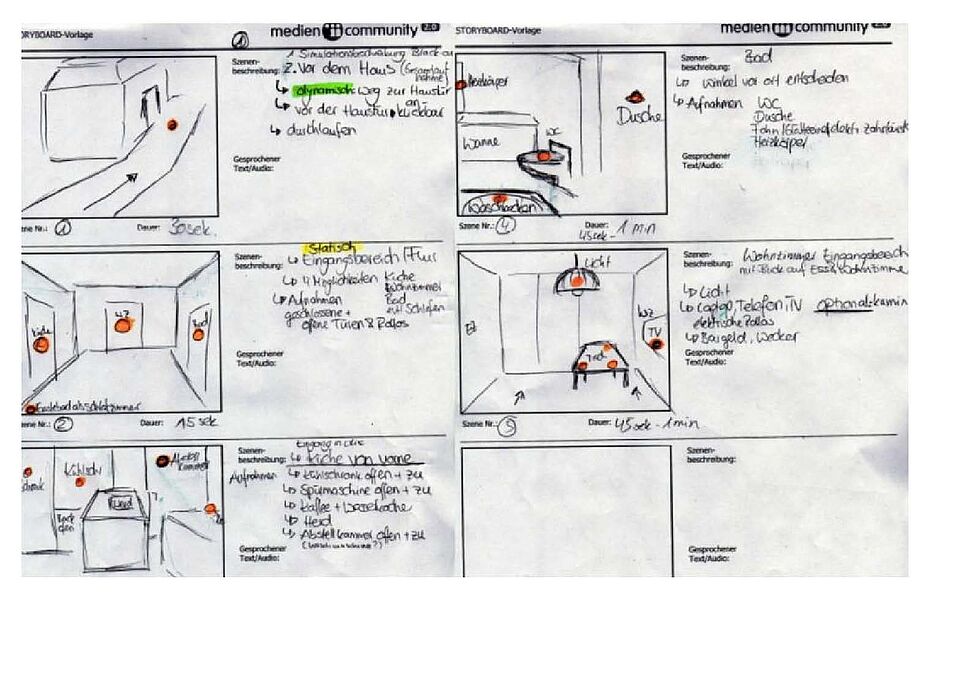 STORYBOARD-Vorlage
medien community 2.0
Szenen-
beschreibung:
2. Vor dem Haus
↳ dynamisch: Weg zur Haustür
↳ vor der Haustür klickbar
↳ durchlaufen
Gesprochener
Text/Audio:
Szene Nr.: 1 Dauer: 30 sek.
Statisch
Szenen-
beschreibung:
↳ Eingangsbereich / Flur
↳ 4 Möglichkeiten Küche
Wohnzimmer
Bad
↳ Aufnahmen
geschlossene +
offene Türen & Rollos
Gesprochener
Text/Audio:
WZ
Bad
Szene Nr.: 2 Dauer: 15 sek
Szenen-
beschreibung:
↳ Küche von vorne
Aufnahmen
↳ Kühlschrank offen + zu
↳ Spülmaschine offen + zu
↳ Kaffee + Wasserkocher
↳ Herd
↳ Abstellkammer offen + zu
Gesprochener
Text/Audio:
Kühlschr.
Abstell
kammer
Back
ofen
Herd
STORYBOARD-Vorlage
medien community 2.0
Szenen-
beschreibung:
Bad
↳ Winkel vor ort entscheiden
↳ Aufnahmen WC
Dusche
Heizkörper
Gesprochener
Text/Audio:
Heizkörper
Dusche
Wanne
WC
Waschbecken
Szene Nr.: 4 Dauer: 45 sek - 1 min
Szenen-
beschreibung:
Wohnzimmer Eingangsbereich
mit Blick auf Ess & Wohnzimmer
↳ Licht
↳ Laptop, Telefon, TV optional: Kamin
elektrische Rollos
↳ Bargeld, Wecker
Gesprochener
Text/Audio:
Licht
WZ
TV
Szene Nr.: 5 Dauer: 45 sek - 1 min
Szenen-
beschreibung:
Gesprochener
Text/Audio: